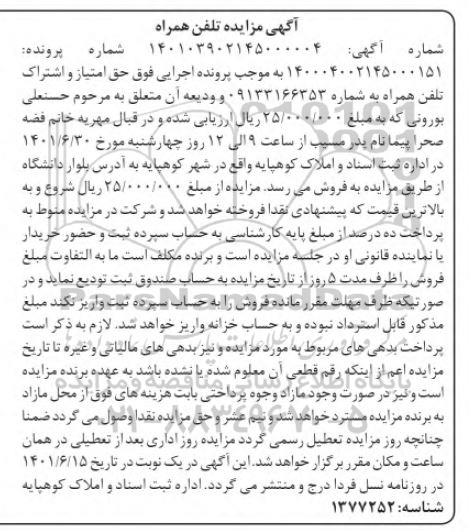 آگهی مزایده تلفن همراه
شماره آگهی: ۱۴۰۱۰۳۹۰۲۱۴۵۰۰۰۰۰۴ شماره پرونده:
۱۴۰۰۰۴۰۰۲۱۴۵۰۰۰۱۵۱ به موجب پرونده اجرایی فوق حق امتیاز و اشتراک
تلفن همراه به شماره ۰۹۱۳۳۱۶۶۳۵۳ و ودیعه آن متعلق به مرحوم حسنعلی
بورونی که به مبلغ ۲۵/۰۰۰/۰۰۰ ریال ارزیابی شده و در قبال مهریه خانم فضه
صحرا پیما نام پدر مسیب از ساعت ۹ الی ۱۲ روز چهارشنبه مورخ ۱۴۰۱/۶/۳۰
در اداره ثبت اسناد و املاک کوهپایه واقع در شهر کوهپایه به آدرس بلوار دانشگاه
از طریق مزایده به فروش می رسد. مزایده از مبلغ ۲۵/۰۰۰/۰۰۰ ریال شروع و به
بالاترین قیمت که پیشنهادی نقدا فروخته خواهد شد و شرکت در مزایده منوط به
پرداخت ده درصد از مبلغ پایه کارشناسی به حساب سپرده ثبت و حضور خریدار
یا نماینده قانونی او در جلسه مزایده است و برنده مکلف است ما به التفاوت مبلغ
فروش را ظرف مدت ۵ روز از تاریخ مزایده به حساب صندوق ثبت تودیع نماید و در
صورتیکه ظرف مهلت مقرر مانده فروش را به حساب سپرده ثبت واریز نکند مبلغ
مذکور قابل استرداد نبوده و به حساب خزانه واریز خواهد شد. لازم به ذکر است
پرداخت بدهی های مربوط به مورد مزایده و نیز بدهی های مالیاتی و غیره تا تاریخ
مزایده اعم از اینکه رقم قطعی آن معلوم شده یا نشده باشد به عهده برنده مزایده
است و نیز در صورت وجود مازاد وجوه پرداختی بابت هزینه های فوق از محل مازاد
به برنده مزایده مسترد خواهد شد و نیم عشر و حق مزایده نقدا وصول می گردد ضمنا
چنانچه روز مزایده تعطیل رسمی گردد مزایده روز اداری بعد از تعطیلی در همان
ساعت و مکان مقرر برگزار خواهد شد. این آگهی در یک نوبت در تاریخ ۱۴۰۱/۶/۱۵
در روزنامه نسل فردا درج و منتشر می گردد. اداره ثبت اسناد و املاک کوهپایه
شناسه: ۱۳۷۷۲۵۲